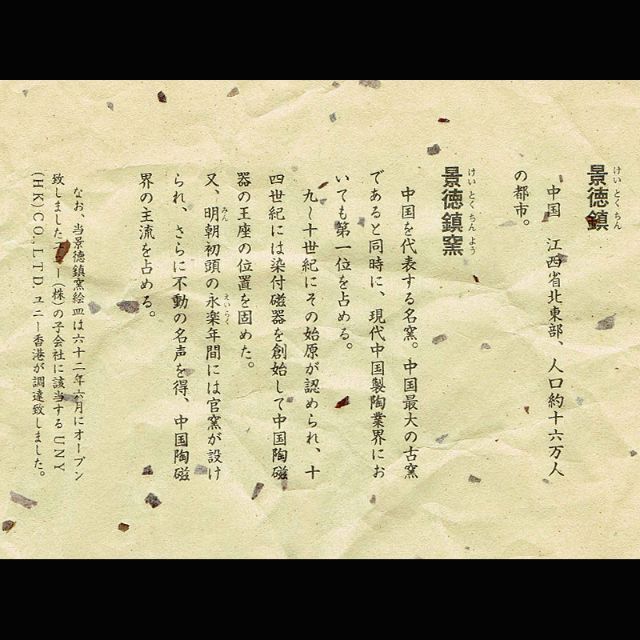 景徳鎮
けいとくちん
中国 江西省北東部、人口約十六万人
の都市。
景徳鎮窯
けいとくちんよう
中国を代表する名窯。中国最大の古窯
であると同時に、現代中国製陶業界にお
いても第一位を占める。
九〜十世紀にその始原が認められ、十
四世紀には染付磁器を創始して中国陶磁
器の王座の位置を固めた。
又、明朝初頭の永楽年間には官窯が設け
みん えいらく
られ、さらに不動の名声を得、中国陶磁
界の主流を占める。
なお、当景徳鎮窯絵皿は六十二年六月にオープン
致しましたユニー(株)の子会社に該当する UNY
(HK) CO., LTD. ユニー香港が調達致しました。